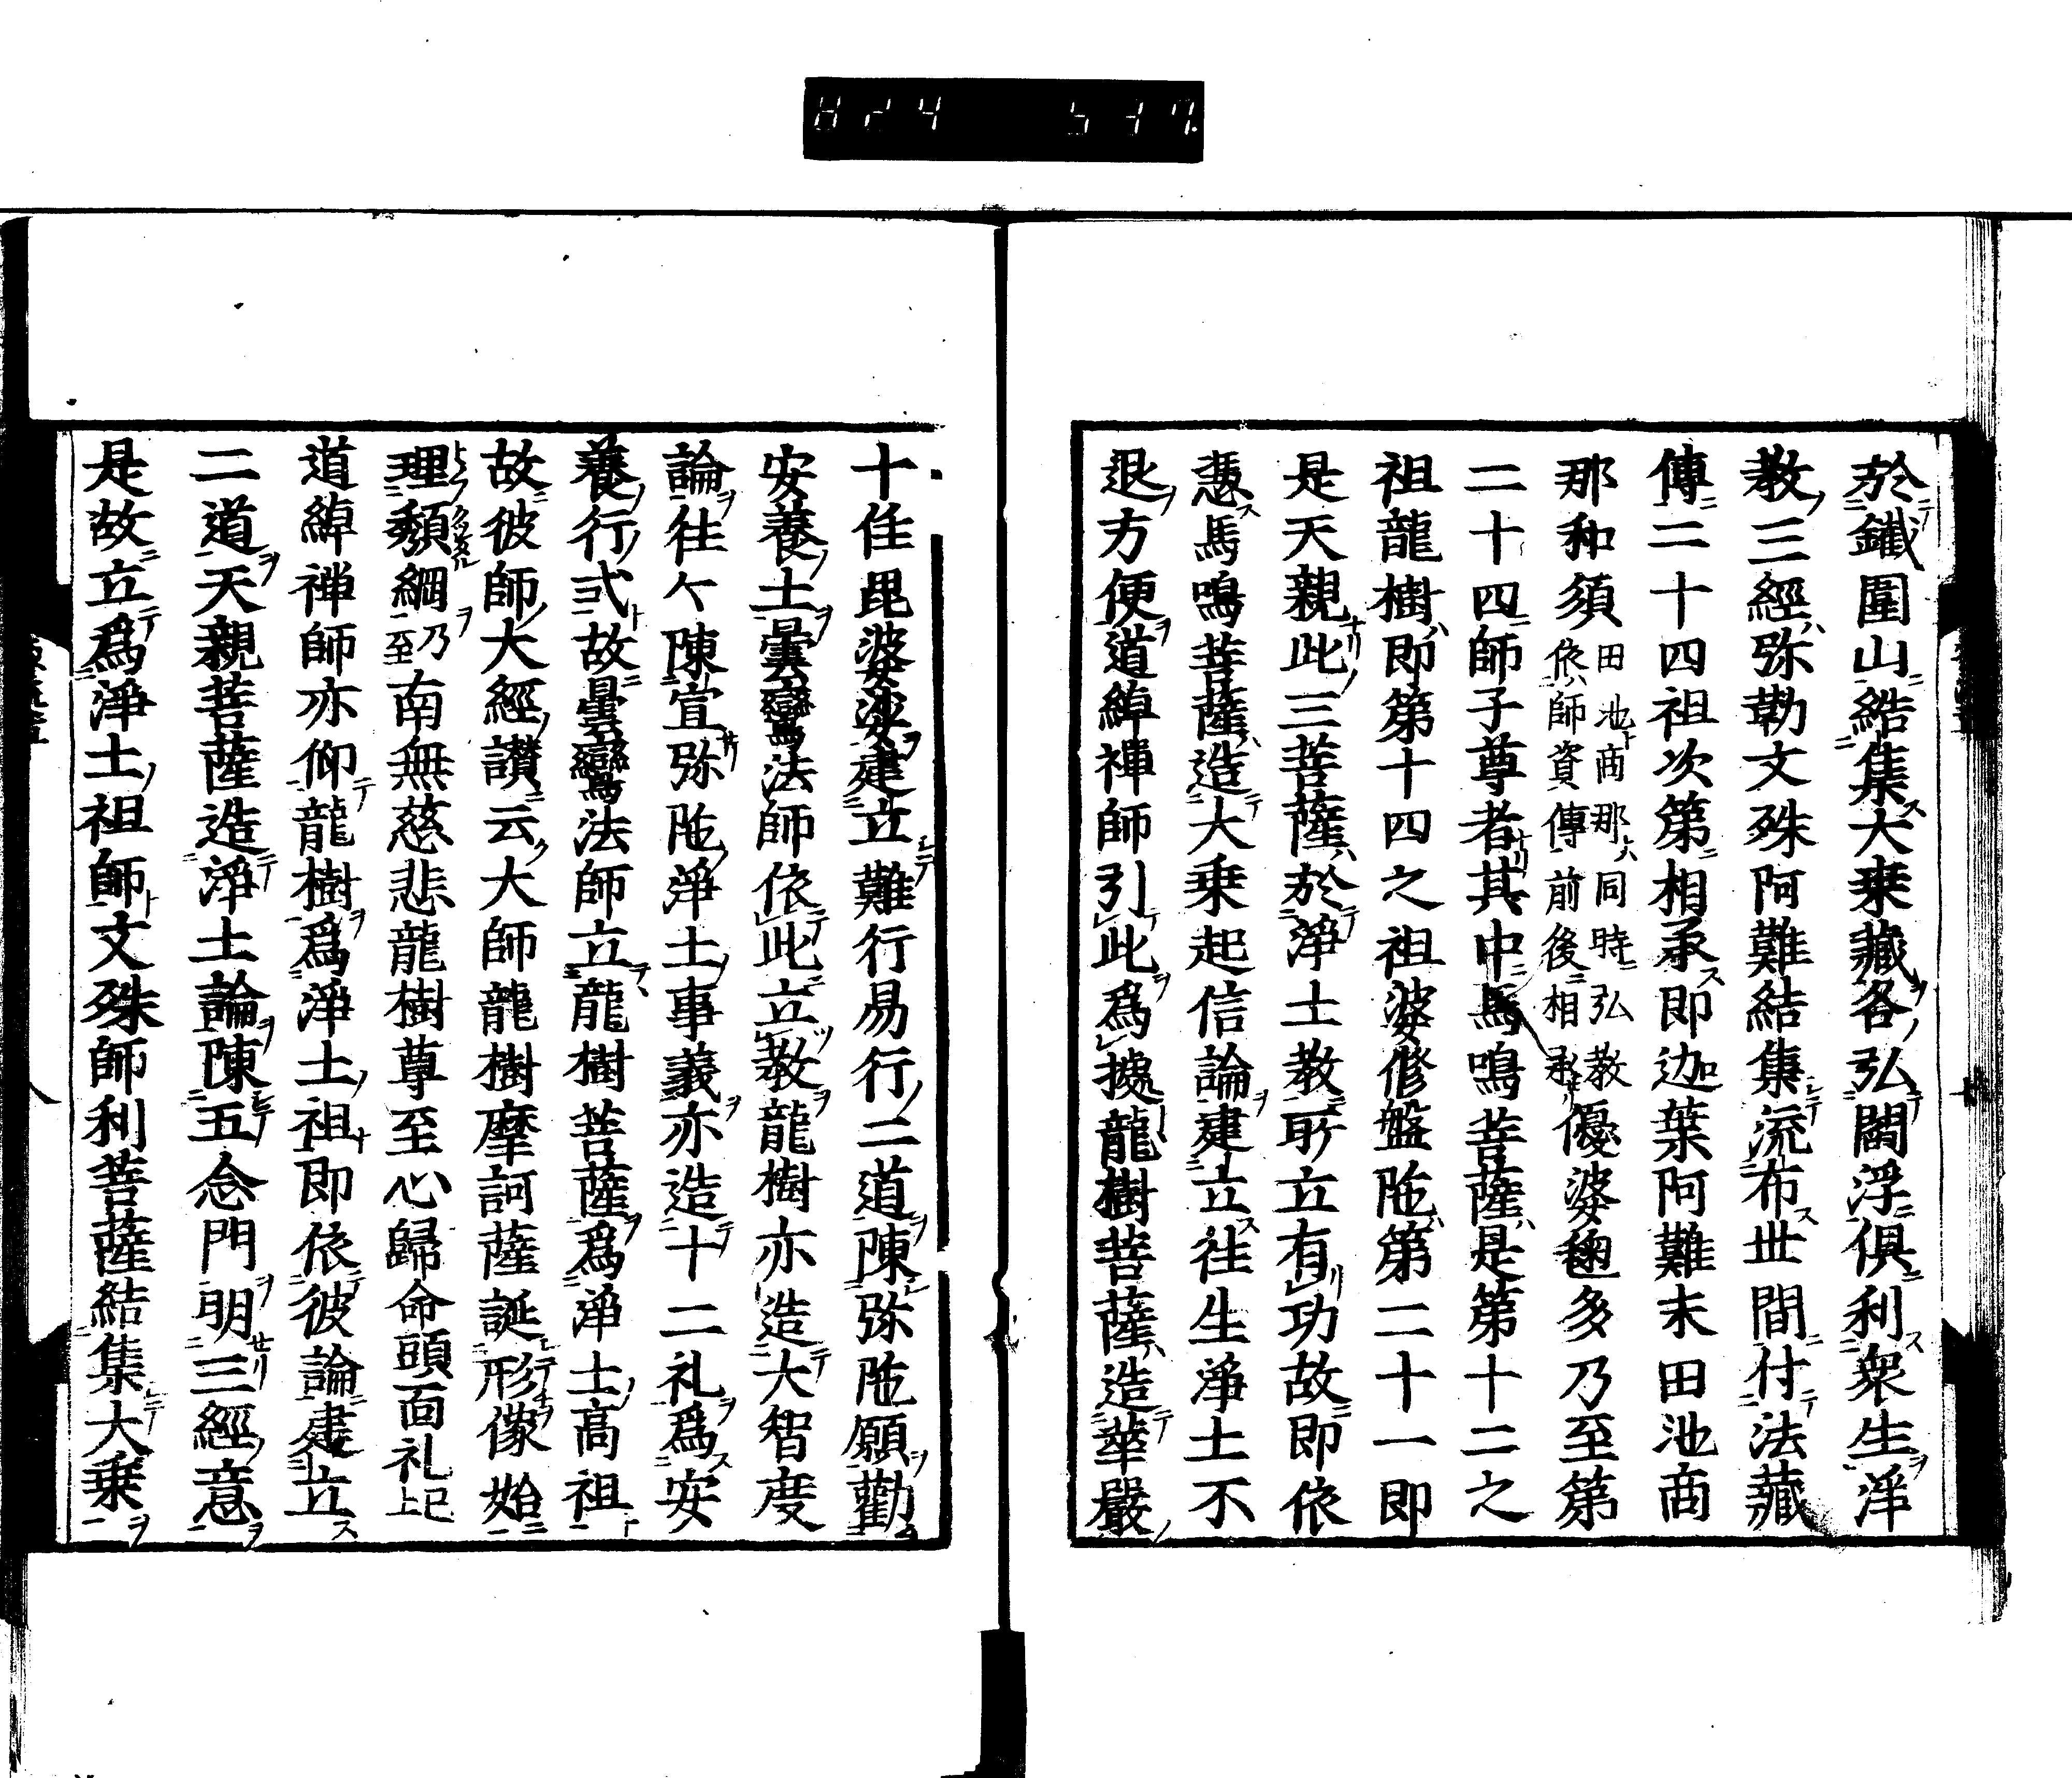 於鐵圍山結集大乗藏各弘閻浮俱利衆生淨
教三經弥勒文殊阿難結集流布世間付法藏
傳二十四祖次第相承即迦葉阿難末田池商
那和須田池商那同時弘教依師資傳前後相承優婆毱多乃至第
二十四師子尊者其中馬鳴菩薩是第十二之
祖龍樹即第十四之祖婆修盤陁第二十一即
是天親此三菩薩於淨土教所立有功故即依
憑馬鳴菩薩造大乗起信論建立往生淨土不
退方便道綽禅師引此爲據龍樹菩薩造華嚴
十住毘婆娑建立難行易行二道陳弥陁願勸
安養土曇鸞法師依此立教龍樹亦造大智度
論往々陳宣弥陁淨土事義亦造十二礼爲安
養行式故曇鸞法師立龍樹菩薩爲淨土高祖
故彼師大經讃云大師龍樹摩訶薩誕形像始
理頽綱乃至南無慈悲龍樹尊至心歸命頭面礼已上
道綽禅師亦仰龍樹爲淨土祖即依彼論建立
二道天親菩薩造淨土論陳五念門明三經意
是故立爲淨土祖師文殊師利菩薩結集大乗